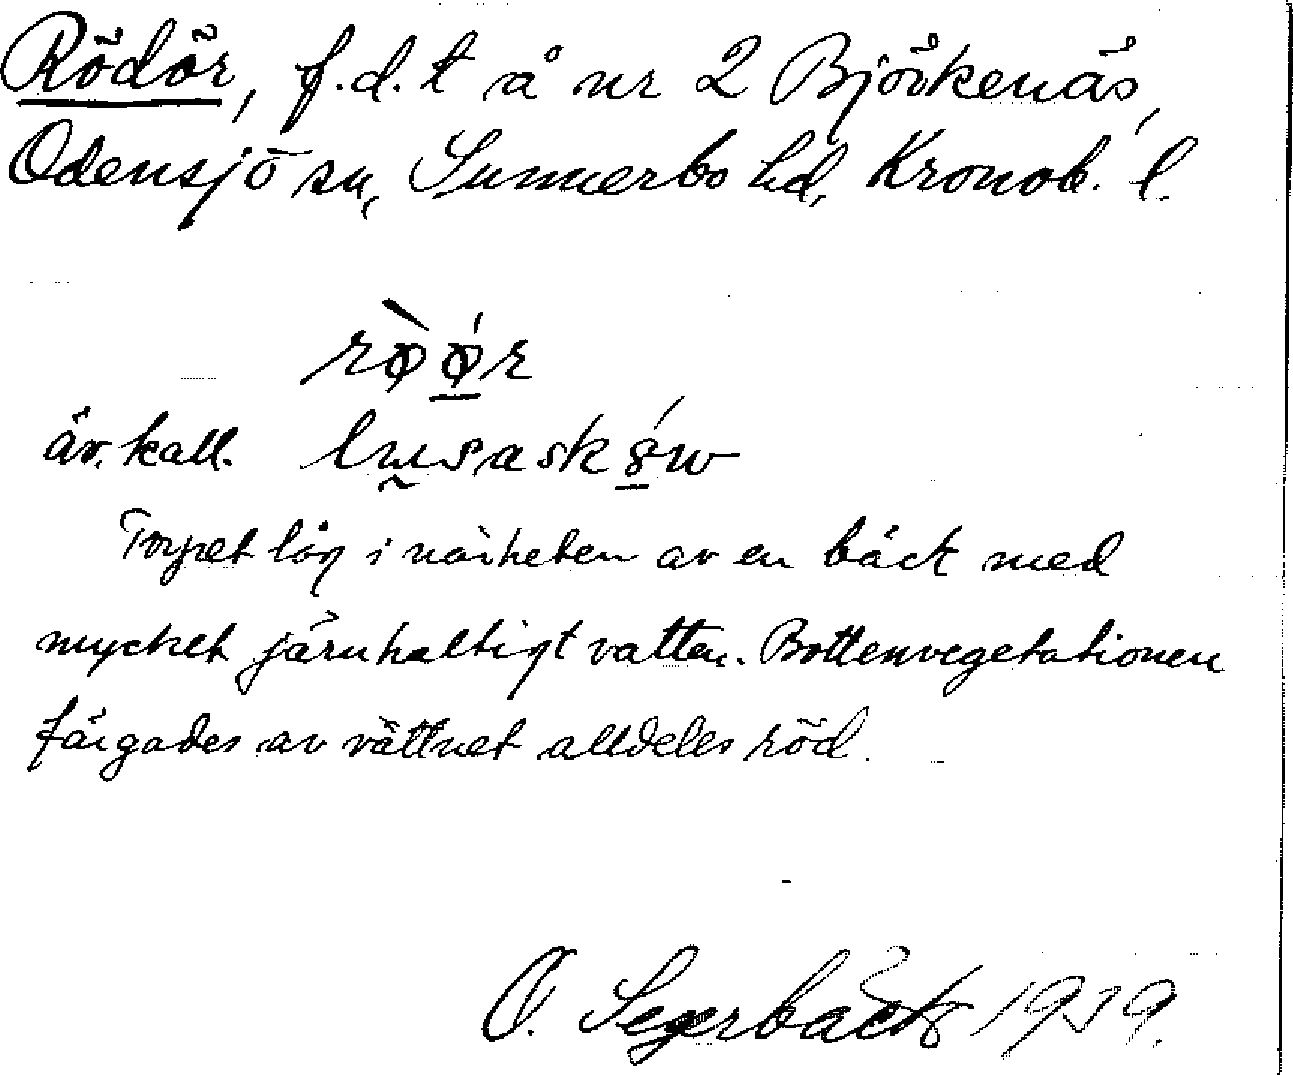 Rödör, f.d. t å nr 2 Björkenäs,
Odensjö sn, Sunnerbo hd, Kronob. l.
rø̀ǿr
äv. kall.
Torpet låg i närheten av en bäck med
mycket järnhaltigt vatten. Bottenvegetationen
färgades av vattnet alldeles röd.
O. Segerbäck 1939.